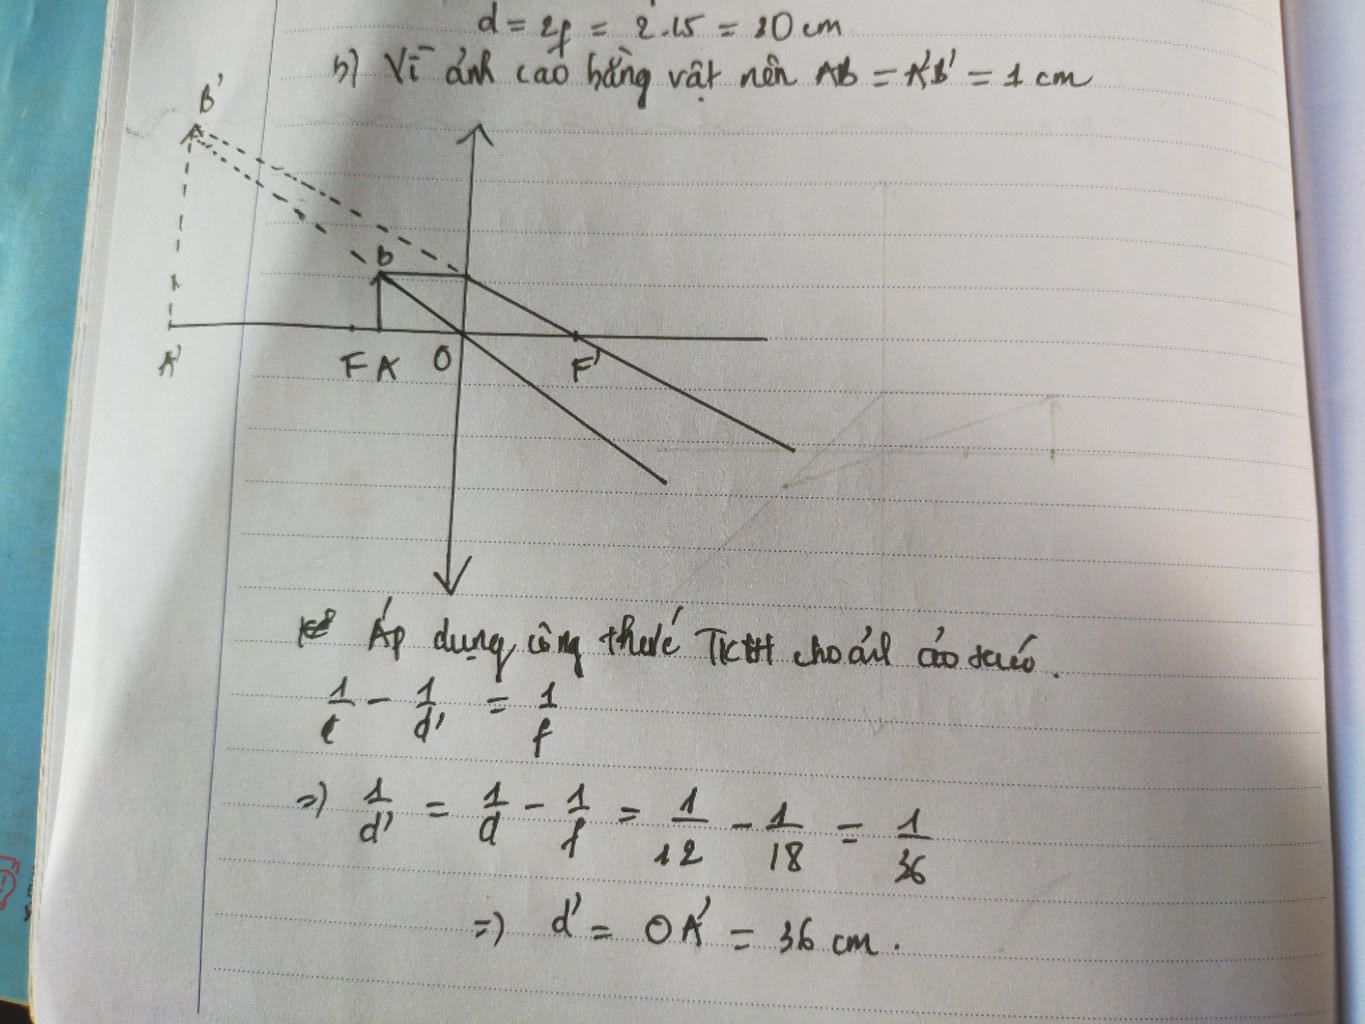 d = 2f = 2.15 = 30 cm
b) Vì ảnh cao bằng vật nên AB = A'B' = 1 cm
B'
B
A' F A O F'
Áp dụng công thức TKHT cho ảnh ảo
1/d - 1/d' = 1/f
=) 1/d' = 1/d - 1/f = 1/12 - 1/18 = 1/36
=) d' = OA' = 36 cm.